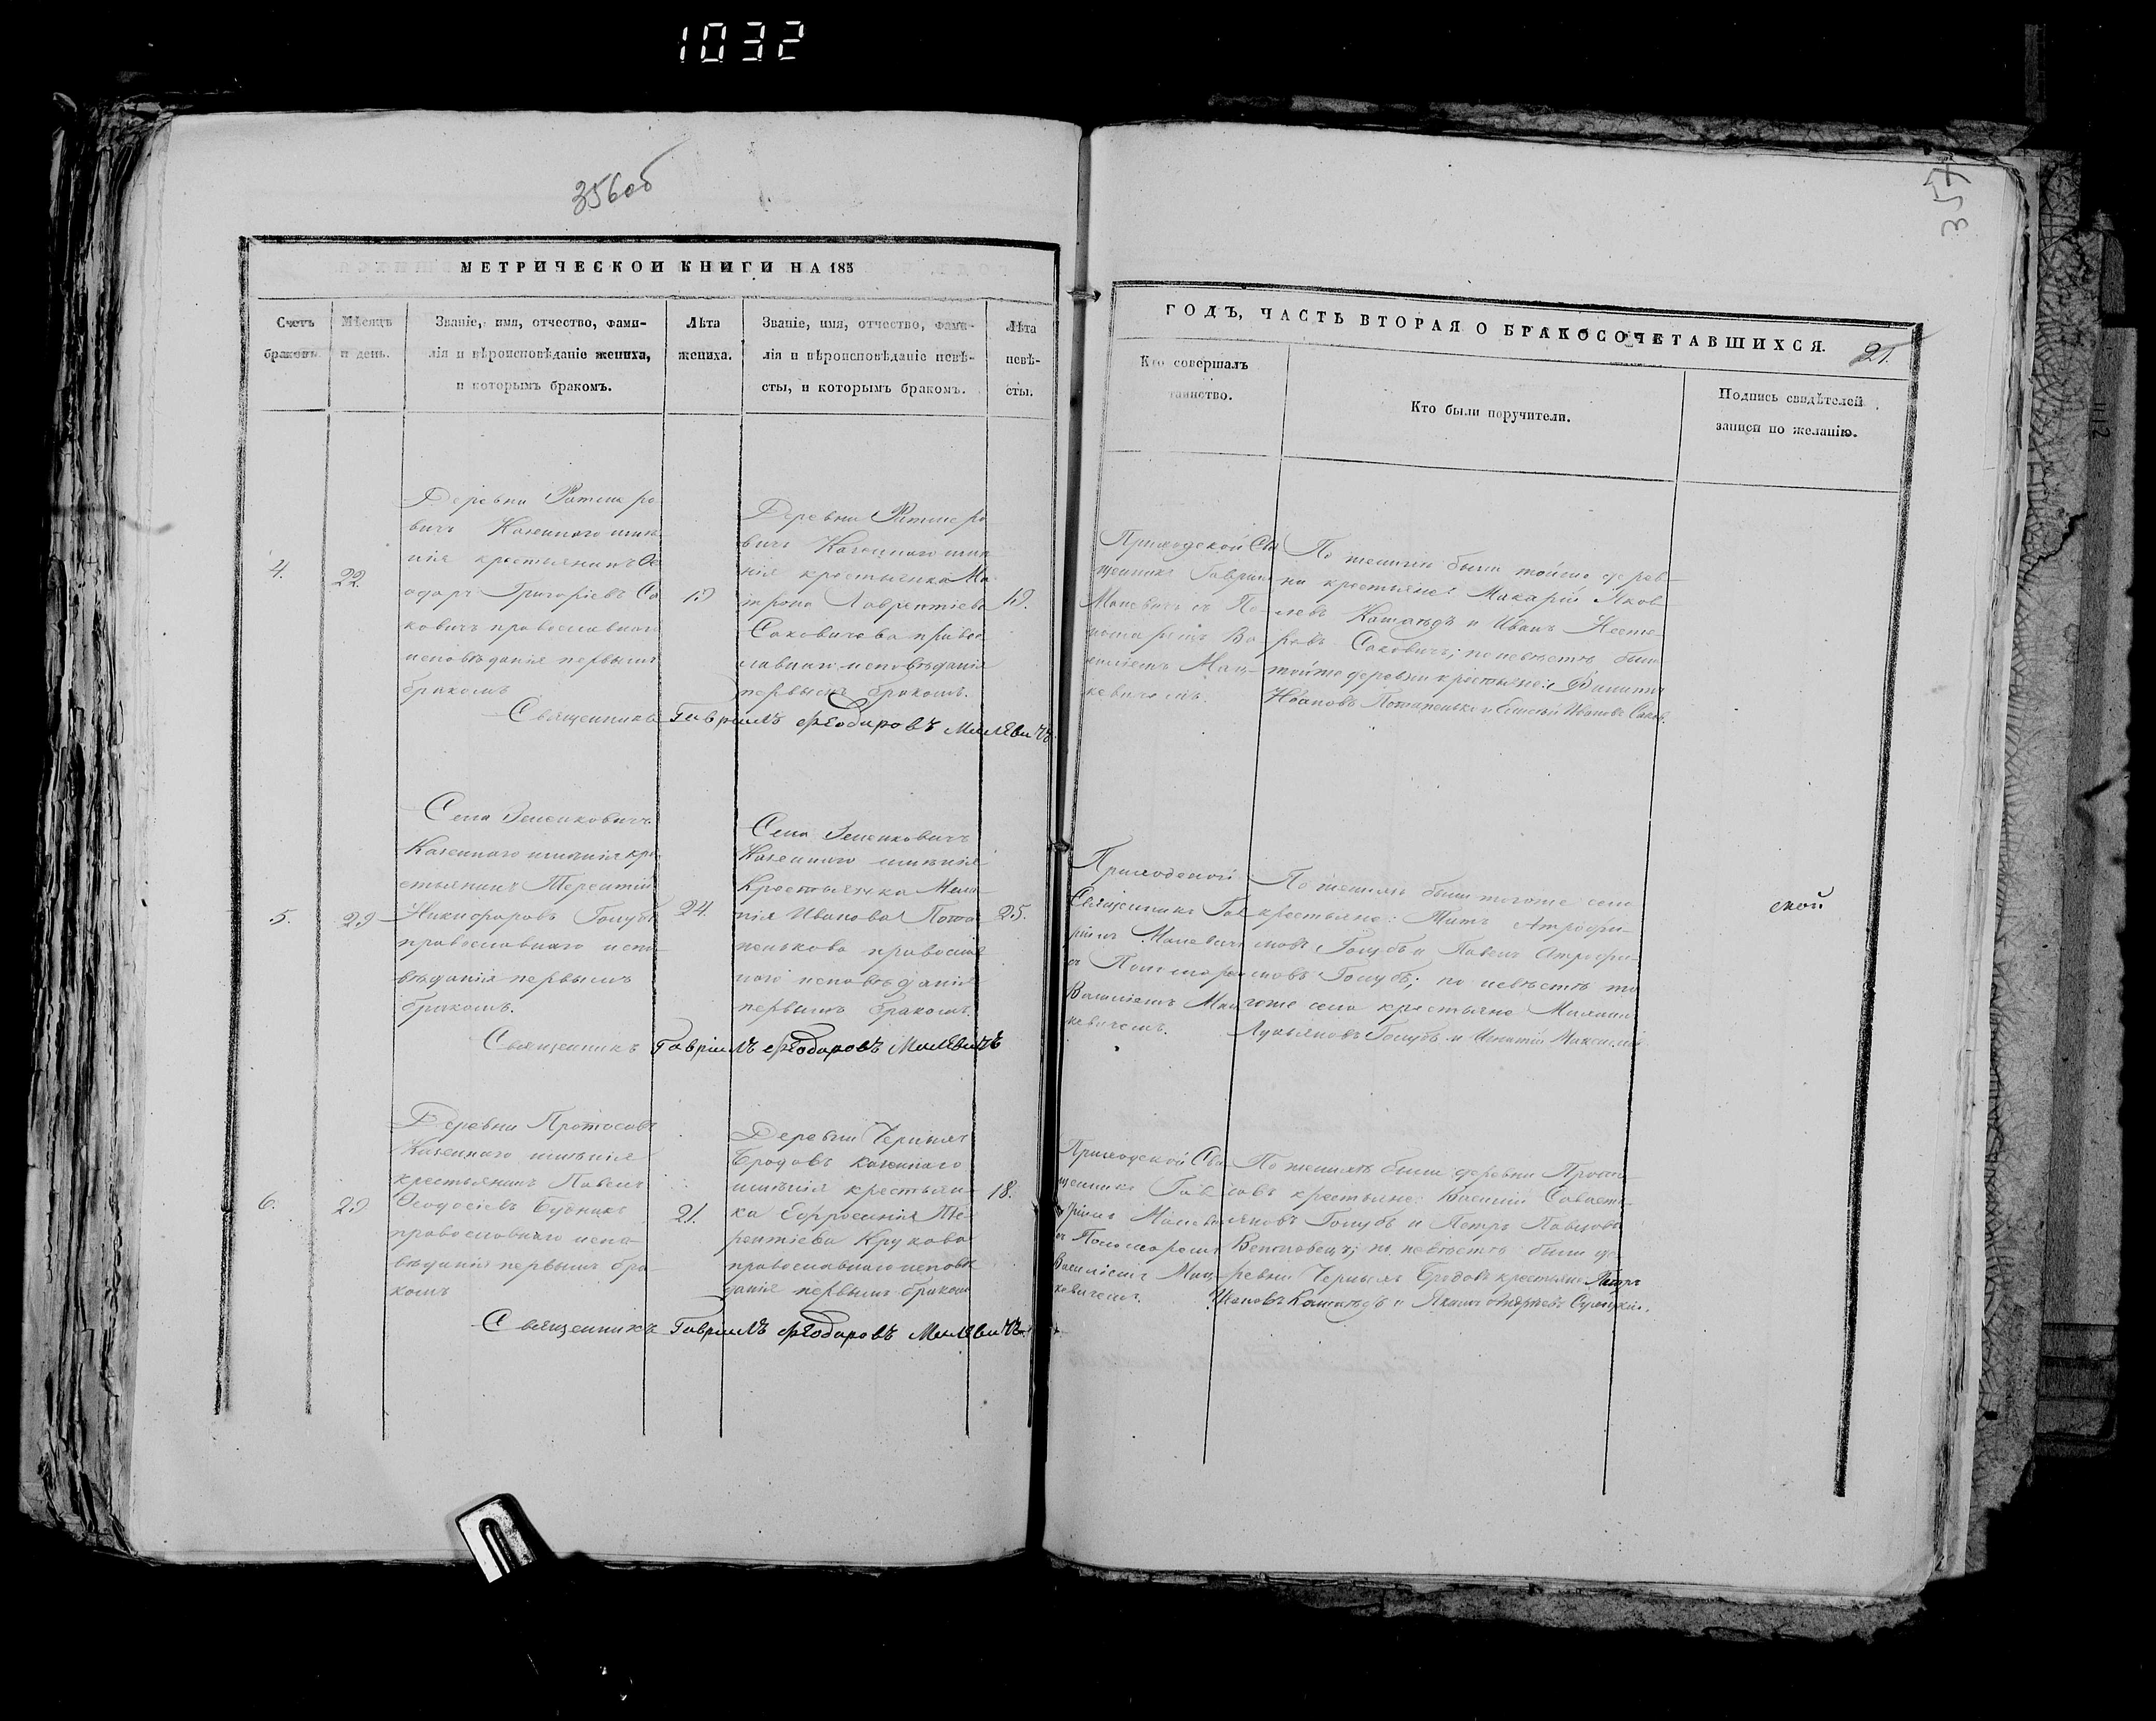 1032
356об
357
МЕТРИЧЕСКОЙ КНИГИ НА 185
Счетъ
браковъ.
Мѣсяцъ
и день.
Званіе, имя, отчество, фами-
лія и вѣроисповѣданіе жениха,
и которымъ бракомъ.
Лѣта
жениха.
Званіе, имя, отчество, фами-
лія и вѣроисповѣданіе невѣ-
сты, и которымъ бракомъ.
Лѣта
невѣ-
сты.
4.
22.
Деревни
вичъ Казеннаго имѣ
нія крестьянинъ Ѳе
одоръ Григоріевъ Са
ковичъ православнаго
исповѣданія первымъ
бракомъ
19
Деревни
вичъ Казеннаго имѣ
нія крестьянка Ма
трона Лаврентіева
Саковичева право
славнаго исповѣданія
первымъ бракомъ.
19.
Священникъ Гавріилъ Феодоровъ Малевичъ.
5.
29
Села Зеленковичъ
Казеннаго имѣнія кре
стьянинъ Терентій
Никифоровъ Голубъ
православнаго испо
вѣданія первымъ
бракомъ.
24.
Села Зеленковичъ
Казеннаго имѣнія
Крестьянка Мела
нія Иванова Пота
пенькова правосла
наго исповѣданія
первымъ бракомъ.
25.
Священникъ Гавріилъ Феодоровъ Малевичъ
6.
29
Деревни Протасовъ
Казеннаго имѣнія
крестьянинъ Павелъ
Ѳеодосіевъ Будникъ
православнаго испо-
вѣданія первымъ бра-
комъ
21.
Деревни Черныхъ
Бродовъ казеннаго
имѣнія крестьян-
ка Евфросинія Те-
рентіева Крукова
православнаго исповѣ
данія первымъ бракомъ
18.
Священникъ Гавріилъ Феодоровъ Малевичъ
ГОДЪ, ЧАСТЬ ВТОРАЯ О БРАКОСОЧЕТАВШИХСЯ.
21.
Кто совершалъ
таинство.
Кто были поручители.
Подпись свидѣтелей
записи по желанію.
Приходской Свя
щенникъ Гавріилъ
Малевичъ съ По-
номаремъ Ва-
силіемъ Мац-
кевичемъ.
По женихѣ были тойже дерев-
ни крестьяне: Макарій Яков-
левъ и Иванъ Несте-
ровъ Саковичъ; по невѣстѣ были
тойже деревни крестьяне: Филиппъ
Ивановъ Потапенько и Ивановъ Саков.
Приходской
Священникъ Гав
ріилъ Малевичъ
съ Пономаремъ
Василіемъ Мац
кевичемъ.
По женихѣ были тогоже села
крестьяне: Титъ Атрофи-
мовъ Голубъ и Павелъ Атрофи-
мовъ Голубъ; по невѣстѣ то
гоже села крестьяне Михаилъ
Лукьяновъ Голубъ и Игнатій
ской
Приходской Свя
щенникъ Гав
ріилъ Малевичъ
съ Пономаремъ
Василіемъ Мац
кевичемъ.
По женихѣ были деревни Прота-
совъ крестьяне: Василій Савасть-
яновъ Голубъ и Петръ Павловъ
по невѣстѣ были де-
ревни Черныхъ Бродовъ крестьяне Петръ
Ивановъ и Якимъ Андреевъ